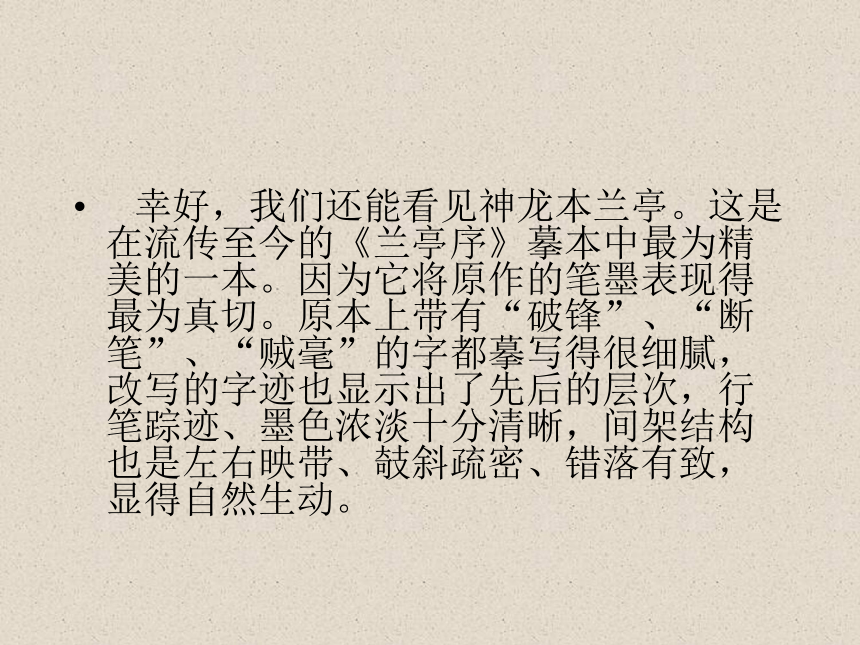 • 幸好，我们还能看见神龙本兰亭。这是
在流传至今的《兰亭序》摹本中最为精
美的一本。因为它将原作的笔墨表现得
最为真切。原本上带有“破锋”、“断
笔”、“贼毫”的字都摹写得很细腻，
改写的字迹也显示出了先后的层次，行
笔踪迹、墨色浓淡十分清晰，间架结构
也是左右映带、攲斜疏密、错落有致，
显得自然生动。